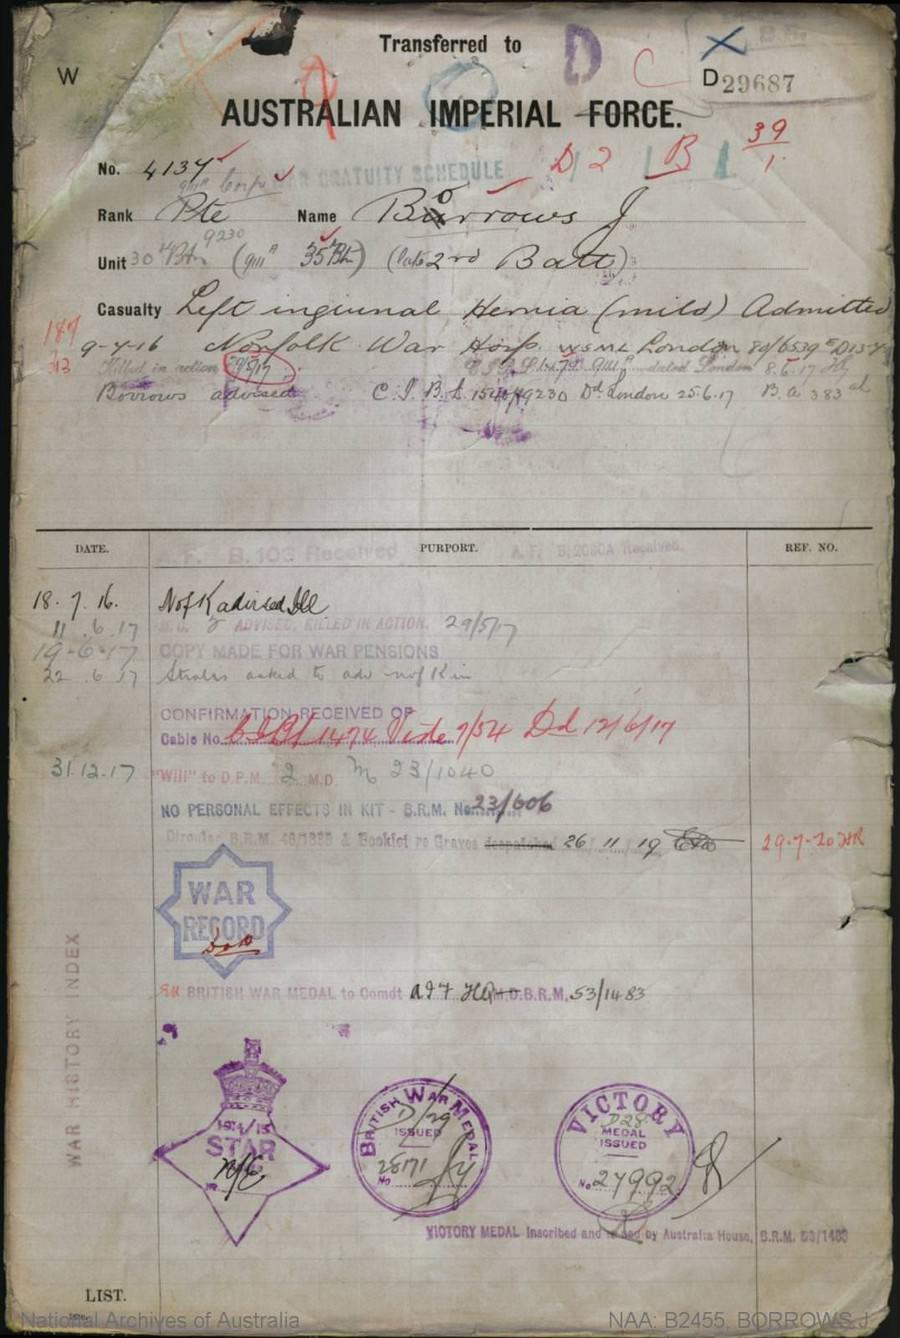 Transferred to
D C
W
D 29687
AUSTRALIAN IMPERIAL FORCE.
No. 4137
D 2 B 1 39/1
WAR GRATUITY SCHEDULE
Rank Pte Name Borrows J
9230
Unit 30th Btn (9th 35 Bn) (late 2nd Batt)
Casualty Left inguinal Hernia (mild) Admitted
9-7-16 Norfolk War Hosp. London
Killed in action 29/5/17 dated London 8.6.17
Borrows advised C.I.B.L. London 25.6.17 B.a 383
DATE. PURPORT. REF. NO.
A.F. B.103 Received A.F. B.2090A Received.
18.7.16. Nof K advised Ill
11.6.17 ADVISED, KILLED IN ACTION. 29/5/17
19-6-17 COPY MADE FOR WAR PENSIONS
22.6.17 asked to adv nof Kin
CONFIRMATION RECEIVED OF
Cable No. 1474 Vide 9/54 Dd 12/6/17
31.12.17 "Will" to D.P.M. 2 M.D. 23/1040
NO PERSONAL EFFECTS IN KIT - B.R.M. No. 23/606
Circular B.R.M. 46/1338 & Booklet re Graves despatched 26 11 19 29-7-20
WAR
RECORD
BRITISH WAR MEDAL to Comdt AIF HQ B.R.M. 53/1483
WAR HISTORY INDEX
1914/15
STAR
N/E
BRITISH WAR MEDAL
D/29
ISSUED
No 28171
VICTORY
D28
MEDAL
ISSUED
No 27992
VICTORY MEDAL Inscribed and issued by Australia House, B.R.M. 53/1483
LIST.
National Archives of Australia NAA: B2455, BORROWS J